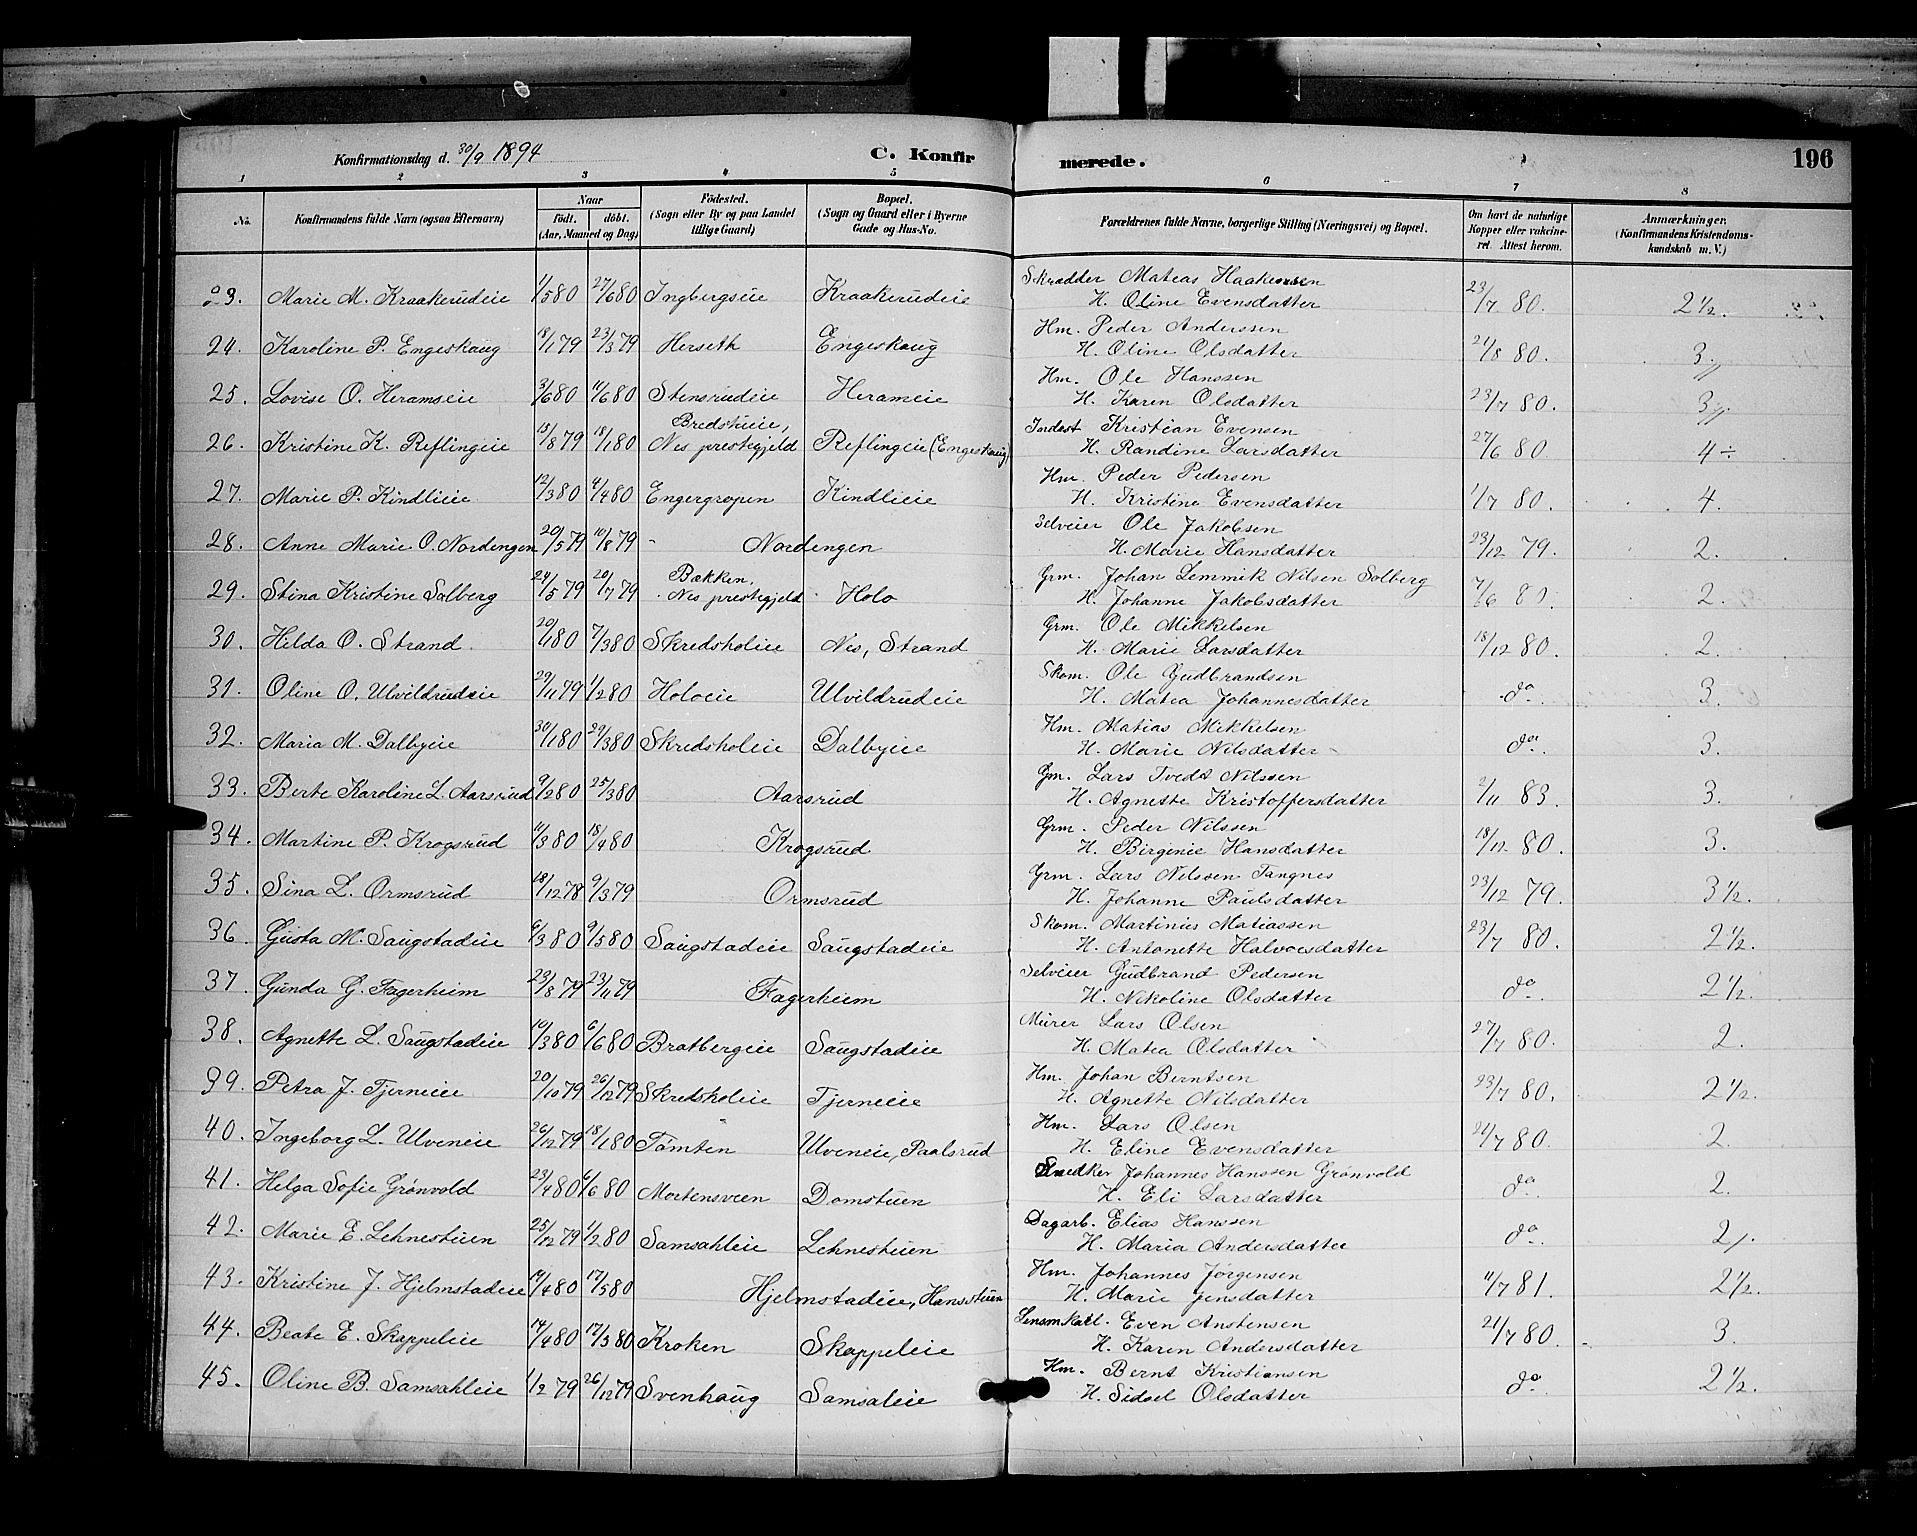 Konfirmationsdag d. 30/9 1894 C. Konfirmerede. 196
1 2 3 4 5 6 7 8
No. Konfirmandens fulde Navn (ogsaa Efternavn) Naar födt. döbt. (Aar, Maaned og Dag) Födested. (Sogn eller By og paa Landet tillige Gaard) Bopæl. (Sogn og Gaard eller i Byerne Gade og Hus-No. Forældrenes fulde Navne, borgerlige Stilling (Næringsvei) og Bopæl. Om havt de naturlige Kopper eller vakcineret. Attest herom. Anmærkninger. (Konfirmandens Kristendomskundskab m. V.)
23. Marie M. Kraakerudeie 1/5 80 27/6 80 Ingbergseie Kraakerudeie Skrædder Matias Haakensen H. Oline Evensdatter 23/7 80. 2 1/2.
24. Karoline P. Engeskaug 18/1 79 23/3 79 Herseth Engeskaug Hm. Peder Anderssen H. Oline Olsdatter 21/8 80. 3.
25. Lovise O. Heramseie 3/6 80 11/6 80 Stensrudeie Herameie Hm. Ole Hanssen H. Karen Olsdatter 23/7 80. 3
26. Kristine K. Reflingeie 15/8 79 18/1 80 Bredstueie, Nes prestegjeld Reflingeie (Engeskaug) Inderst Kristian Evensen H. Randine Larsdatter 27/6 80 4 ÷
27. Marie P. Kindlieie 12/3 80 4/4 80 Engergropen Kindlieie Hm. Peder Pedersen H. Kristine Evensdatter 1/7 80. 4.
28. Anne Marie O. Nordengen 20/5 79 10/8 79 Nordengen Selveier Ole Jakobsen H. Marie Hansdatter 23/12 79. 2.
29. Stina Kristine Solberg 24/5 79 20/7 79 Bækken, Nes prestegjeld Holo Grm. Johan Lemmik Nilsen Solberg H. Johanne Jakobsdatter 7/6 80. 2.
30. Hilda O. Strand 20/1 80 7/3 80 Skredsholeie Nes, Strand Grm. Ole Mikkelsen H. Marie Larsdatter 18/12 80. 2.
31. Oline O. Ulvildrudeie 29/11 79 1/2 80 Holoeie Ulvildrudeie Skom. Ole Gudbrandsen H. Matea Johannesdatter do. 3.
32. Maria M. Dalbyeie 30/1 80 29/3 80 Skredsholeie Dalbyeie Hm. Matias Mikkelsen H. Marie Nilsdatter do. 3.
33. Berte Karoline L. Aarsrud 9/2 80 25/3 80 Aarsrud Gm. Lars Tvedt Nilssen H. Agnette Kristoffersdatter 2/11 83. 3.
34. Martine P. Krogsrud 11/3 80 18/4 80 Krogsrud Grm. Peder Nilssen H. Birginie Hansdatter 18/12 80. 3.
35. Sina L. Ormsrud 18/12 78 9/3 79 Ormsrud Grm. Lars Nilssen Tangnes H. Johanne Paulsdatter 23/12 79. 3 1/2.
36. Gusta M. Saugstadeie 6/3 80 9/5 80 Saugstadeie Saugstadeie Skom. Martinius Matiassen H. Antonette Halvorsdatter 23/7 80. 2 1/2
37. Gunda G. Fagerheim 23/8 79 23/11 79 Fagerheim Selveier Gudbrand Pedersen H. Nikoline Olsdatter do. 2 1/2.
38. Agnette L. Saugstadeie 10/3 80 6/6 80 Bratbergeie Saugstadeie Murer Lars Olsen H. Matea Olsdatter 27/7 80. 2.
39. Petra J. Tjerneie 20/10 79 26/12 79 Skredsholeie Tjerneie Hm. Johan Berntsen H. Agnette Nilsdatter 23/7 80. 2 1/2.
40. Ingeborg L. Ulveneie 26/12 79 18/1 80 Tømten Ulveneie, Paalsrud Hm. Lars Olsen H. Eline Evensdatter 21/7 80. 2.
41. Helga Sofie Grønvold 23/4 80 6/6 80 Mortensveen Domstuen Snedker Johannes Hanssen Grønvold H. Eli Larsdatter do. 2.
42. Marie E. Lehnestuen 25/12 79 1/2 80 Samsahleie Lehnestuen Dagarb. Elias Hanssen H. Maria Andersdatter do. 2
43. Kristine J. Hjelmstadeie 14/4 80 17/5 80 Hjelmstadeie, Hansstuen Hm. Johannes Jørgensen H. Marie Jensdatter 11/7 81. 2 1/2.
44. Beate E. Skappeleie 14/2 80 17/3 80 Kroken Skappeleie Lensmkarl. Even Anstensen H. Karen Andersdatter 21/7 80. 3.
45. Oline B. Samsahleie 1/2 79 26/12 79 Svenhaug Samsaleie Hm. Bernt Kristiansen H. Sidsel Olsdatter do. 2 1/2.